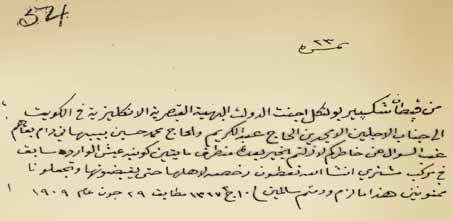 54
نمرة ٢٣
من قبطان شكسبير بولتكل اجنت الدولة البهية القيصرية الانكليزية في الكويت
الى جناب الاجلين الامجدين الحاج عبد الكريم والحاج محمد حسين بهبهاني دام بقاهم
غب السؤال عن خاطركم لازلتم بخير وبعده من طرف مايتين كونية عيش الواردة سابق
في مركب مشتري انشاء الله تعطون رخصه لاهلها حتى يقبضونها وتجعلونا
ممنونين هذا ما لزم ودمتم سالمين ١٠ ج ١٣٢٧ مطابق ٢٩ جون عام ١٩٠٩